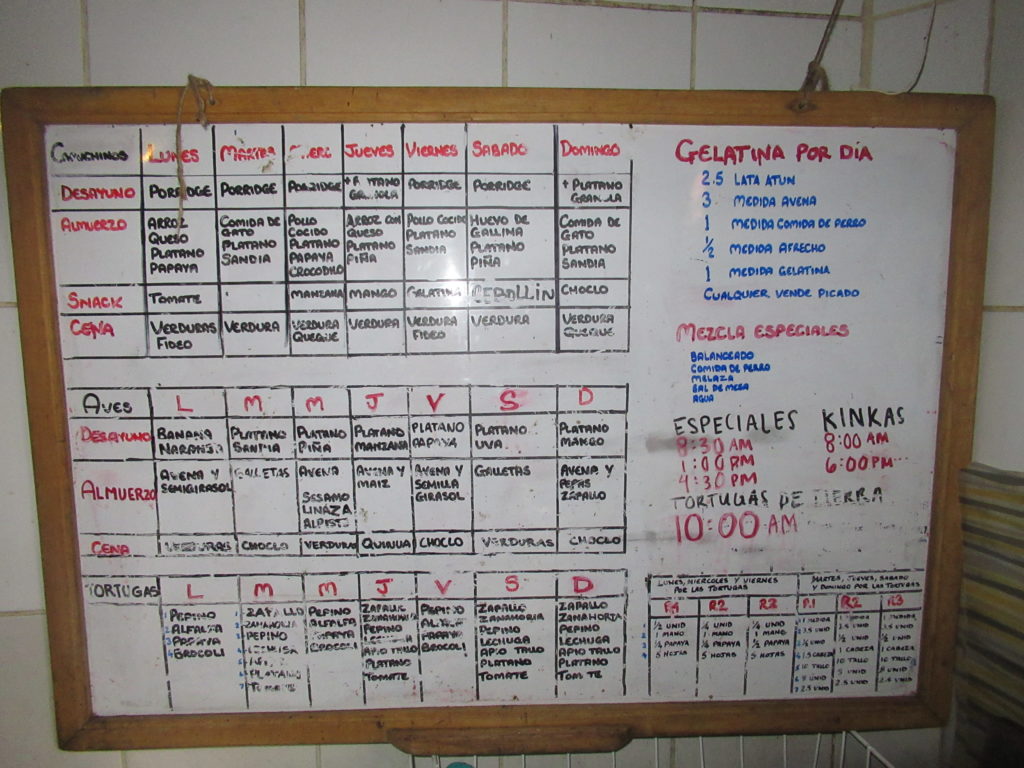 CAPUCHINOS LUNES MARTES JUEVES VIERNES SABADO DOMINGO
DESAYUNO PORRIDGE PORRIDGE PORRIDGE PORRIDGE PORRIDGE + PLATANO
ALMUERZO ARROZ COMIDA DE POLLO ARROZ CON POLLO COCIDO HUEVO DE COMIDA DE
QUESO GATO COCIDO QUESO PLATANO GALLINA GATO
PLATANO PLATANO PLATANO PLATANO SANDIA PLATANO PLATANO
PAPAYA SANDIA PAPAYA PIÑA PIÑA SANDIA
CROCODILO
SNACK TOMATE MANZANA MANGO GELATINA CEBOLLIN CHOCLO
CENA VERDURAS VERDURA VERDURA VERDURA VERDURA VERDURA VERDURA
FIDEO QUEQUE FIDEO QUEQUE
AVES L M M J V S D
DESAYUNO BANANA PLATANO PLATANO PLATANO PLATANO PLATANO PLATANO
NARANJA SANDIA PIÑA MANZANA PAPAYA UVA MANGO
ALMUERZO AVENA Y GALLETAS AVENA AVENA Y AVENA Y GALLETAS AVENA Y
SEMIGIRASOL MAIZ SEMILLA PEPAS
SESAMO GIRASOL ZAPALLO
LINAZA
ALPISTE
CENA VERDURAS CHOCLO VERDURA QUINUA CHOCLO VERDURAS CHOCLO
TORTUGAS L M M J V S D
PEPINO ZAPALLO PEPINO ZAPALLO PEPINO ZAPALLO ZAPALLO
ALFALFA ZANAHORIA ALFALFA ZANAHORIA ZANAHORIA ZANAHORIA
PAPAYA PEPINO PAPAYA PEPINO PAPAYA PEPINO PEPINO
BROCOLI LECHUGA BROCOLI BROCOLI LECHUGA LECHUGA
APIO TALLO APIO TALLO APIO TALLO
PLATANO PLATANO PLATANO PLATANO
TOMATE TOMATE TOMATE TOM TE
GELATINA POR DÍA
2.5 LATA ATUN
3 MEDIDA AVENA
1 MEDIDA COMIDA DE PERRO
½ MEDIDA AFRECHO
1 MEDIDA GELATINA
CUALQUIER VENDE PICADO
MEZCLA ESPECIALES
BALANCEADO
COMIDA DE PERRO
MELAZA
SAL DE MESA
AGUA
ESPECIALES KINKAS
8:30 AM 8:00 AM
1:00 PM 6:00 PM
4:30 PM
TORTUGAS DE TIERRA
10:00 AM
LUNES, MIERCOLES Y VIERNES MARTES, JUEVES, SABADO
POR LAS TORTUGAS Y DOMINGO POR LAS TORTUGAS
R2 R.1 R2 R3
½ UNID ¼ UNID ¼ UNID
1 MANO 1 MANO 1 MANO
¼ PAPAYA ½ PAPAYA ½ PAPAYA 1 CABEZA
5 HOJAS 5 HOJAS 5 HOJAS 1 CABEZA
10 TALLO